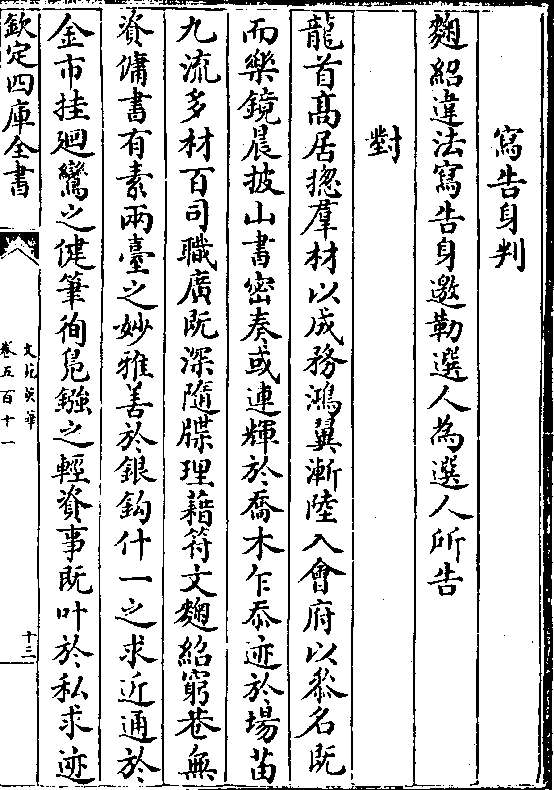 寫告身判
麴紹違法寫告身邀勒選人為選人所告
對
龍首高居揔羣材以成務鴻翼漸陸入會府以叅名既
而樂鏡晨披山書密奏或連輝於喬木乍忝迹於場苗
九流多材百司職廣既深隨牒理藉符文麴紹窮巷無
資傭書有素兩臺之妙雅善於銀鈎什一之求近通於
金市挂廻鸞之健筆徇鳬鏹之輕資事既叶於私求迹
欽定四庫全書
文苑英華
卷五百十一
十三